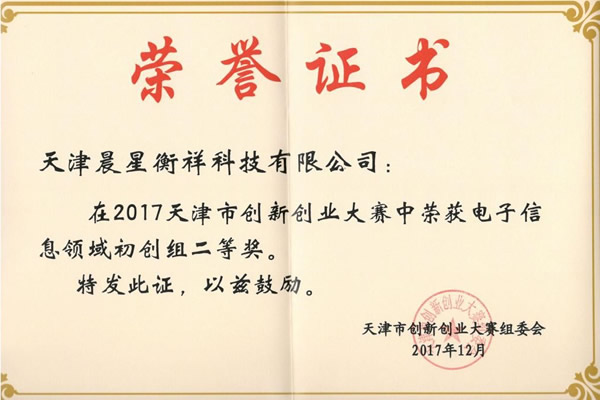 荣誉证书
天津晨星衡祥科技有限公司：
在2017天津市创新创业大赛中荣获电子信
息领域初创组二等奖。
特发此证，以兹鼓励。
天津市创新创业大赛组委会
2017年12月